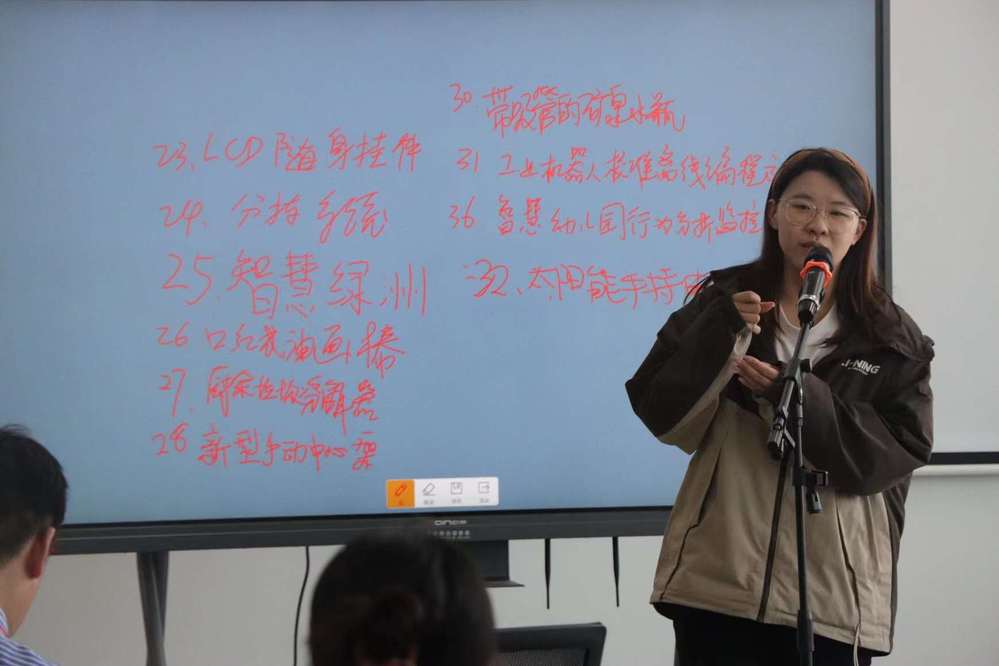 23、LCD随身挂件
24、分拣系统
25、智慧绿洲
26 口红式油画棒
27、厨余垃圾分解器
28 新型手动中心架
30. 带吸管的矿泉水瓶
31 工业机器人校准离线编程
36 智慧幼儿园行为分析监控
32、太阳能手持
LI-NING